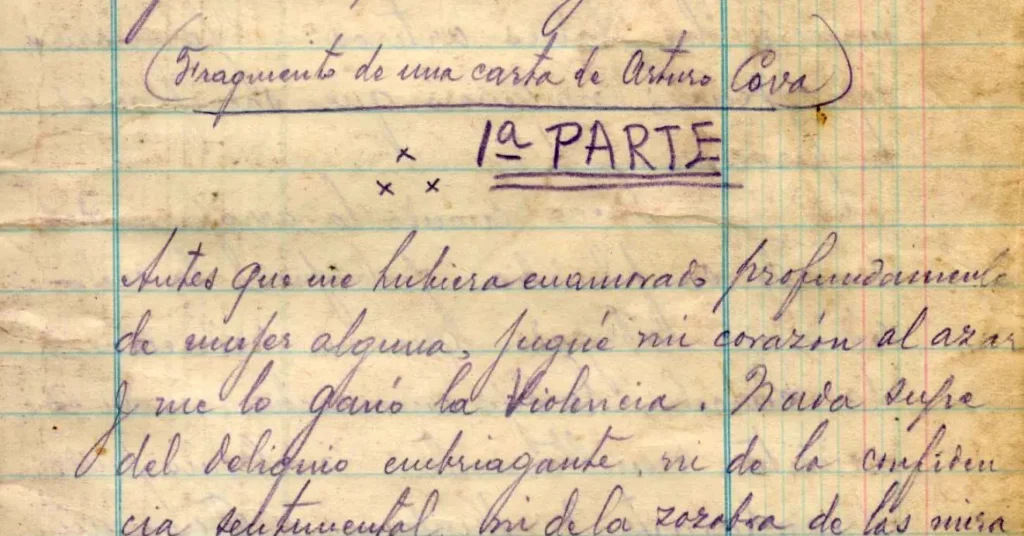 (Fragmento de una carta de Arturo Cova)
1ª PARTE
Antes que me hubiera enamorado profundamente
de mujer alguna, jugué mi corazón al azar
y me lo ganó la Violencia. Nada supe
del deliquio embriagante, ni de la confiden
cia sentimental, ni de la zozobra de las mira